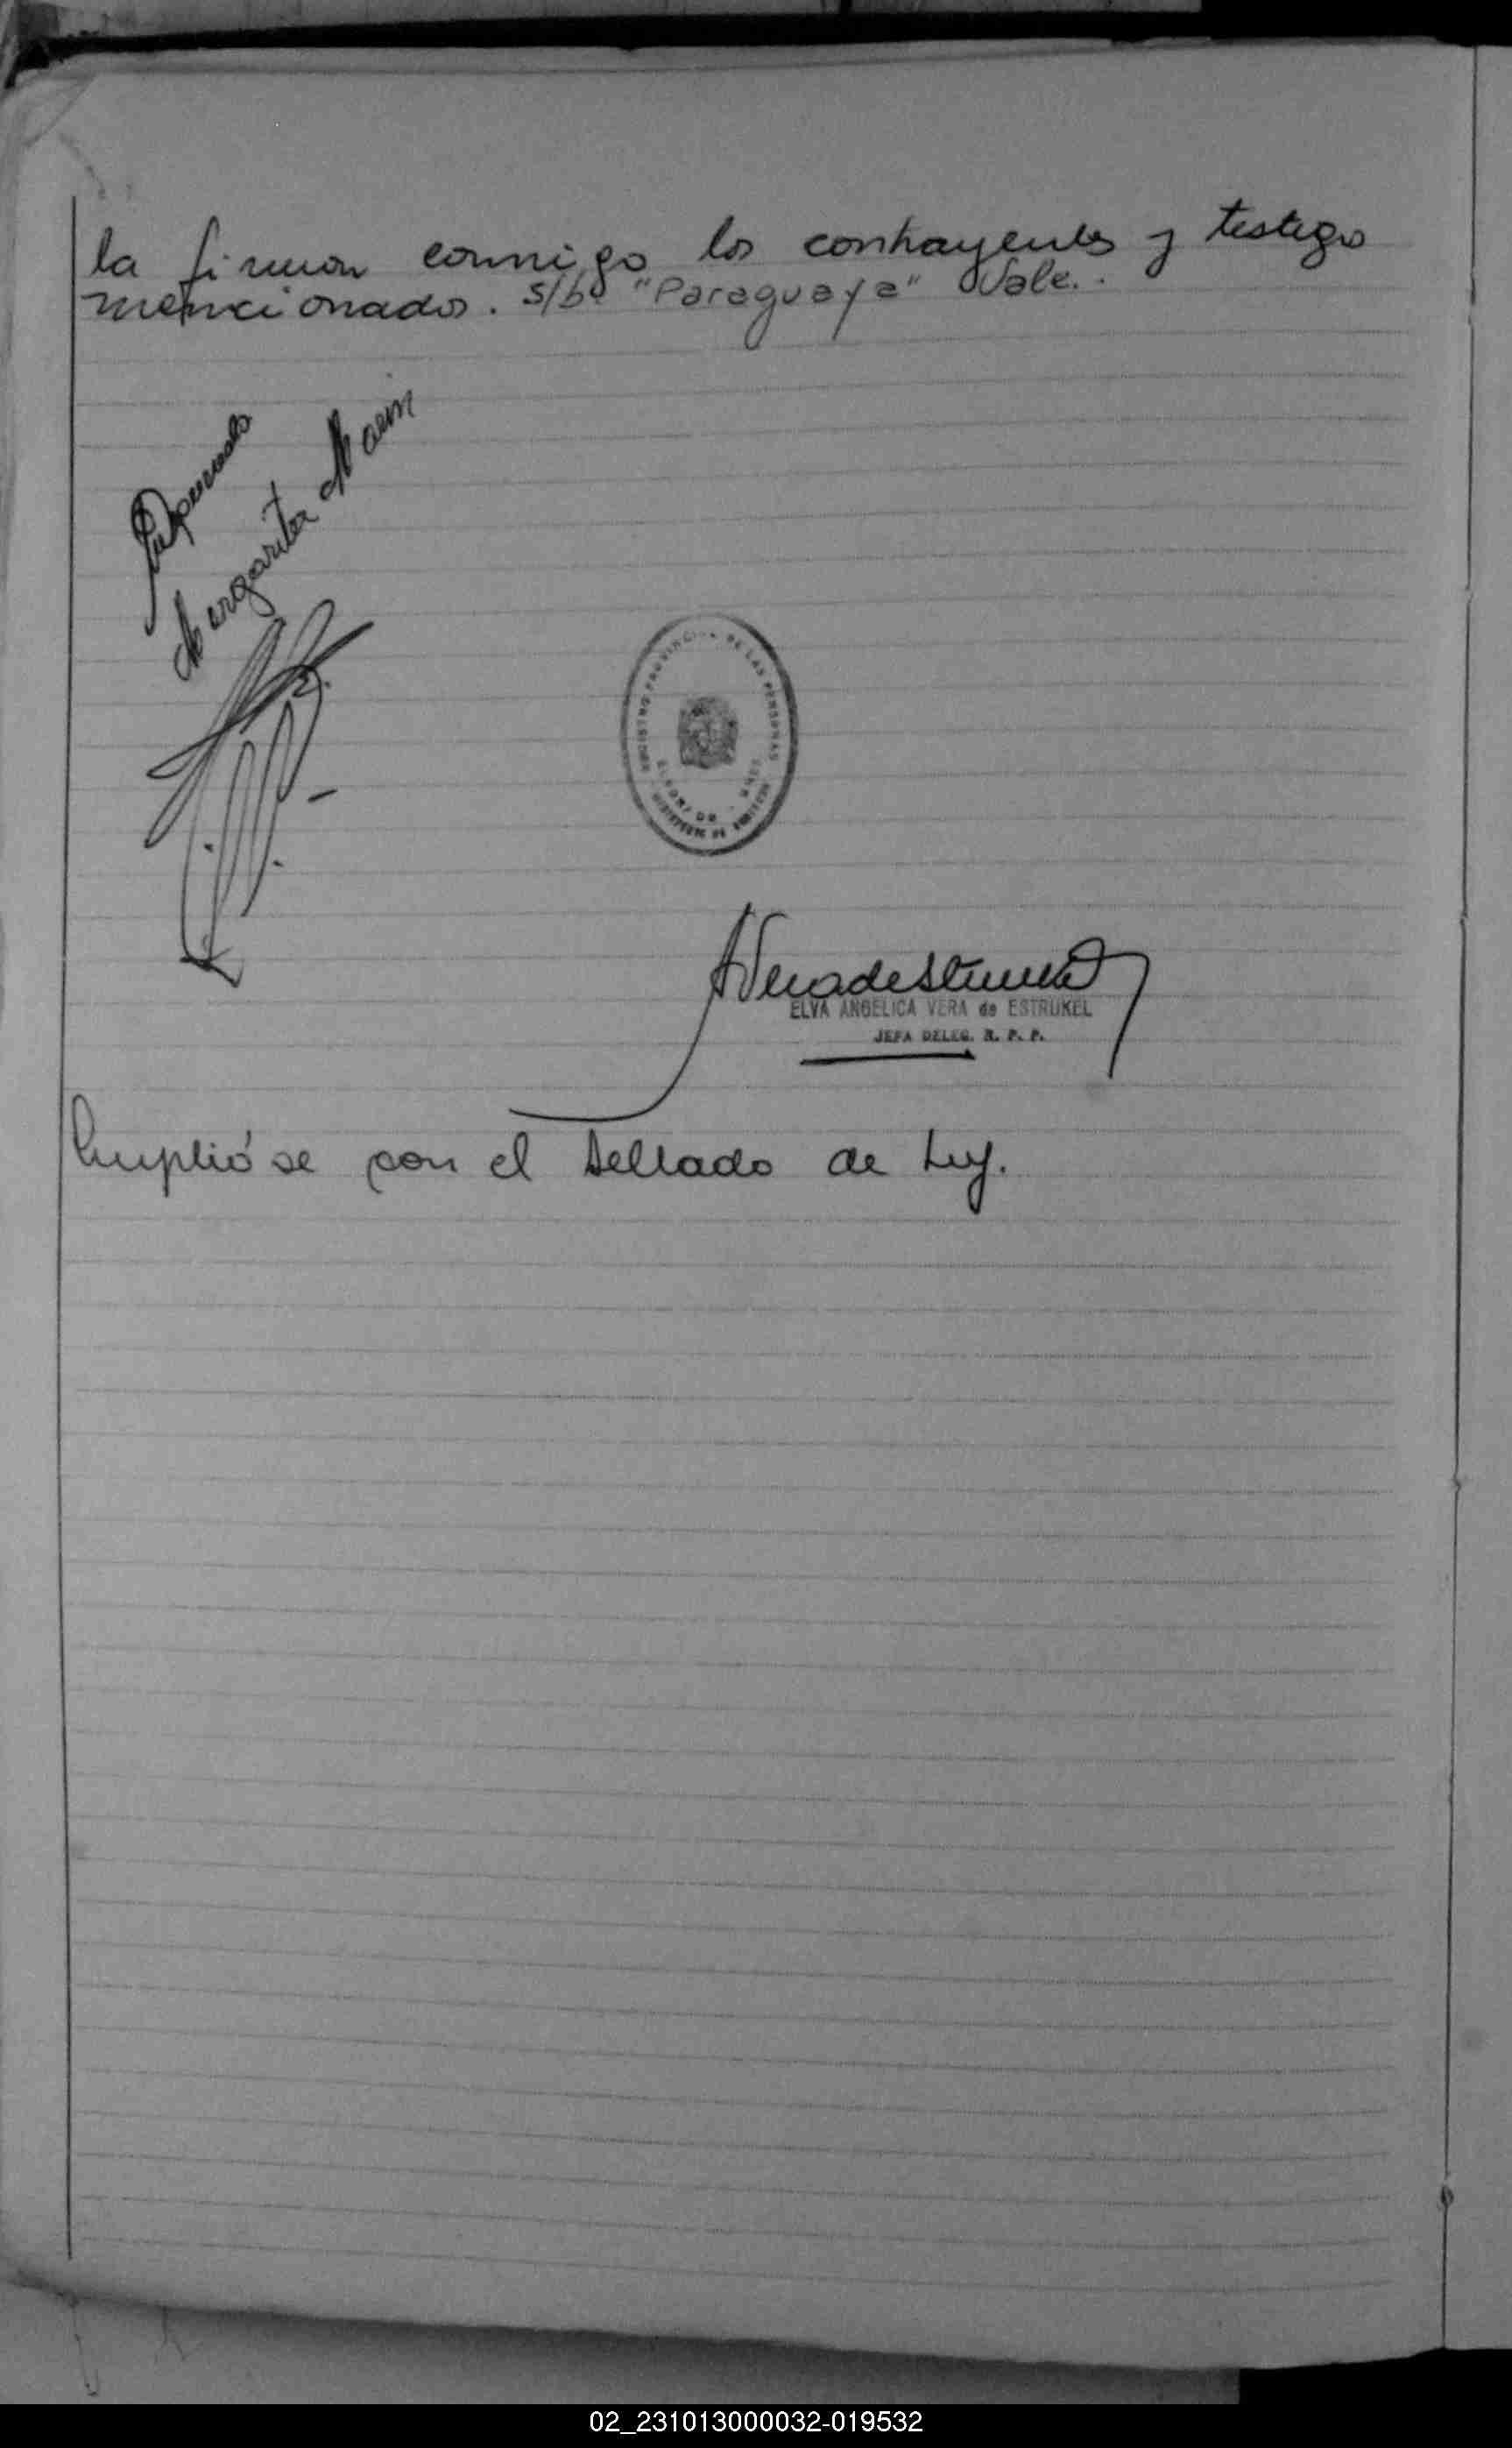 la firman conmigo los contrayentes y testigos
mencionados. s/b. "Paraguaya" Vale..
Margarita Maein
REGISTRO PROVINCIAL DE LAS PERSONAS
ELVA ANGELICA VERA de ESTRUKEL
JEFA DELEG. R. P. P.
Cumplióse con el Sellado de Ley.
02_231013000032-019532